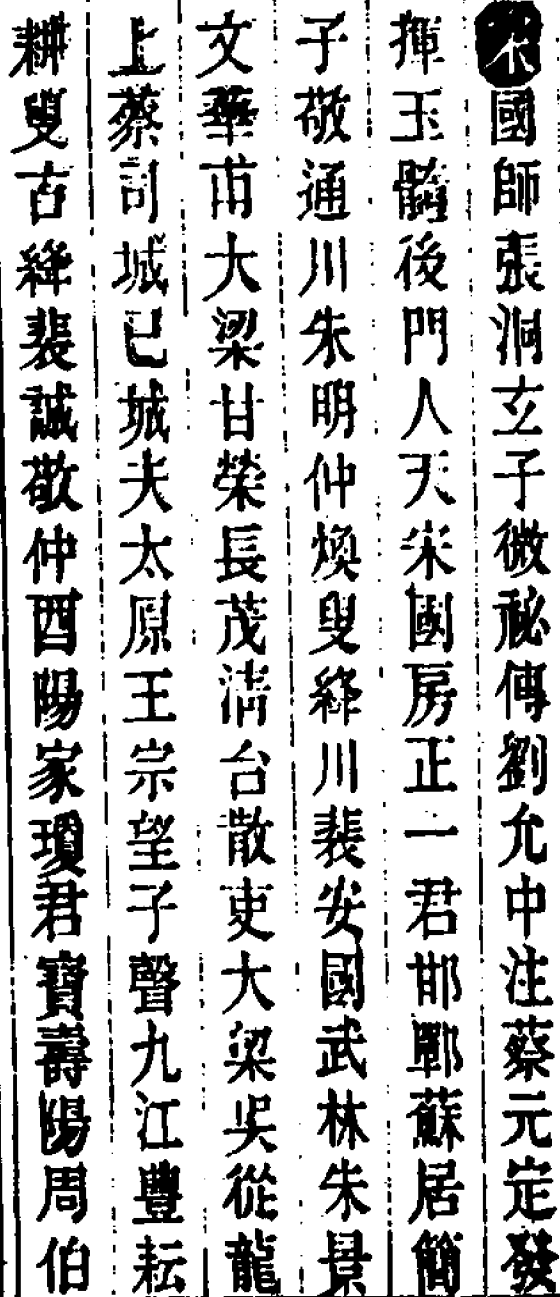 宋國師張洞玄子微祕傳劉允中注蔡元定發
揮玉髓後門人天宋國房正一君邯鄲蘇居簡
子敬通川朱明仲煥叟絳川裴安國武林朱景
文華甫大梁甘榮長茂清台散吏大梁吳從龍
上蔡司城已城夫太原王宗望子聲九江豐耘
耕叟古絳裴誠敬仲酉陽家瓊君寶壽陽周伯